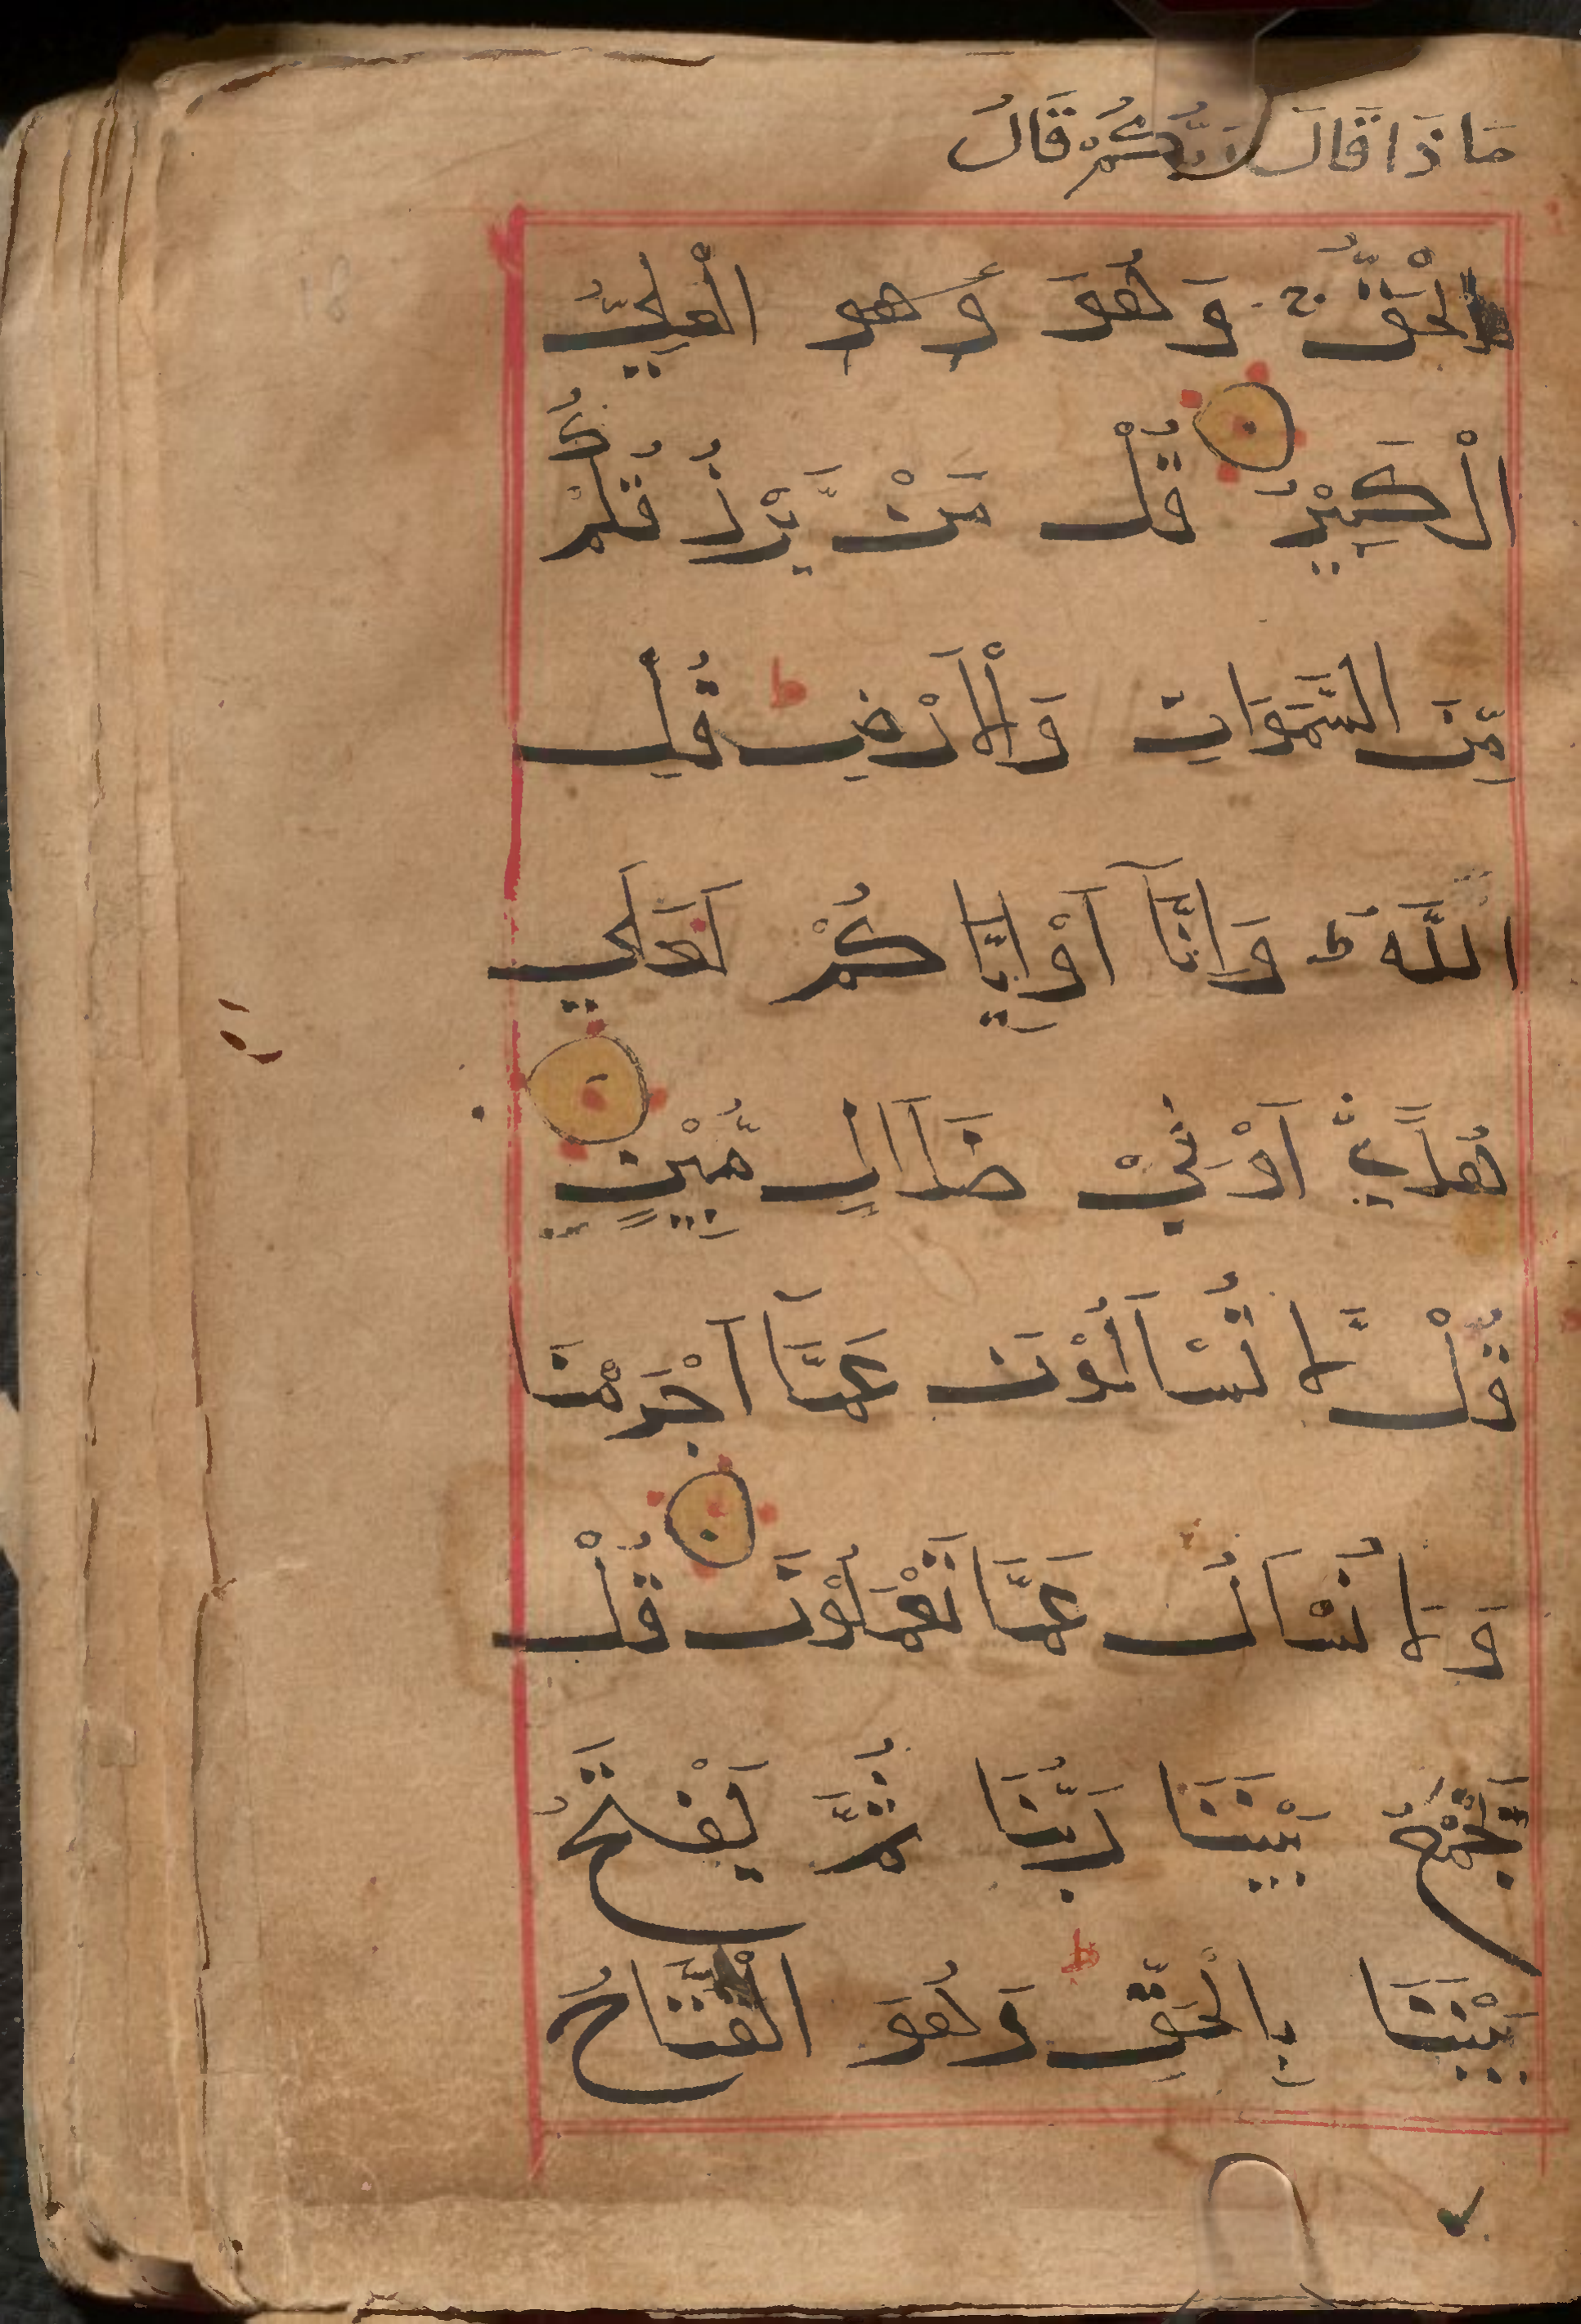 مَاذَا قَالَ رَبُّكُمْ قَالُ
الْحَقُّ ج وَهُوَ وَهو الْعَلِيُّ
الْكَبِيْرُ قُلْ مَنْ يَّرْزُقُكُمْ
مِّنَ السَّمَوَاتِ وَالْاَرْضِ ط قُلِ
اللَّهُ لا وَاِنَّآ اَوْ اِيَّاكُمْ لَعَلَي
هُدًي اَوْ فِيْ ضَلَالٍ مُّبِيْنٍ
قُلْ لَّا تُسْاَلُوْنَ عَمَّآ اَجْرَمْنَا
وَلَا نُسْاَلُ عَمَّا تَعْمَلُوْنَ قُلْ
يَجْمَعُ بَيْنَنَا رَبُّنَا ثُمَّ يَفْتَحُ
بَيْنَنَا بِالْحَقِّ ط وَهُوَ الْفَتَّاحُ